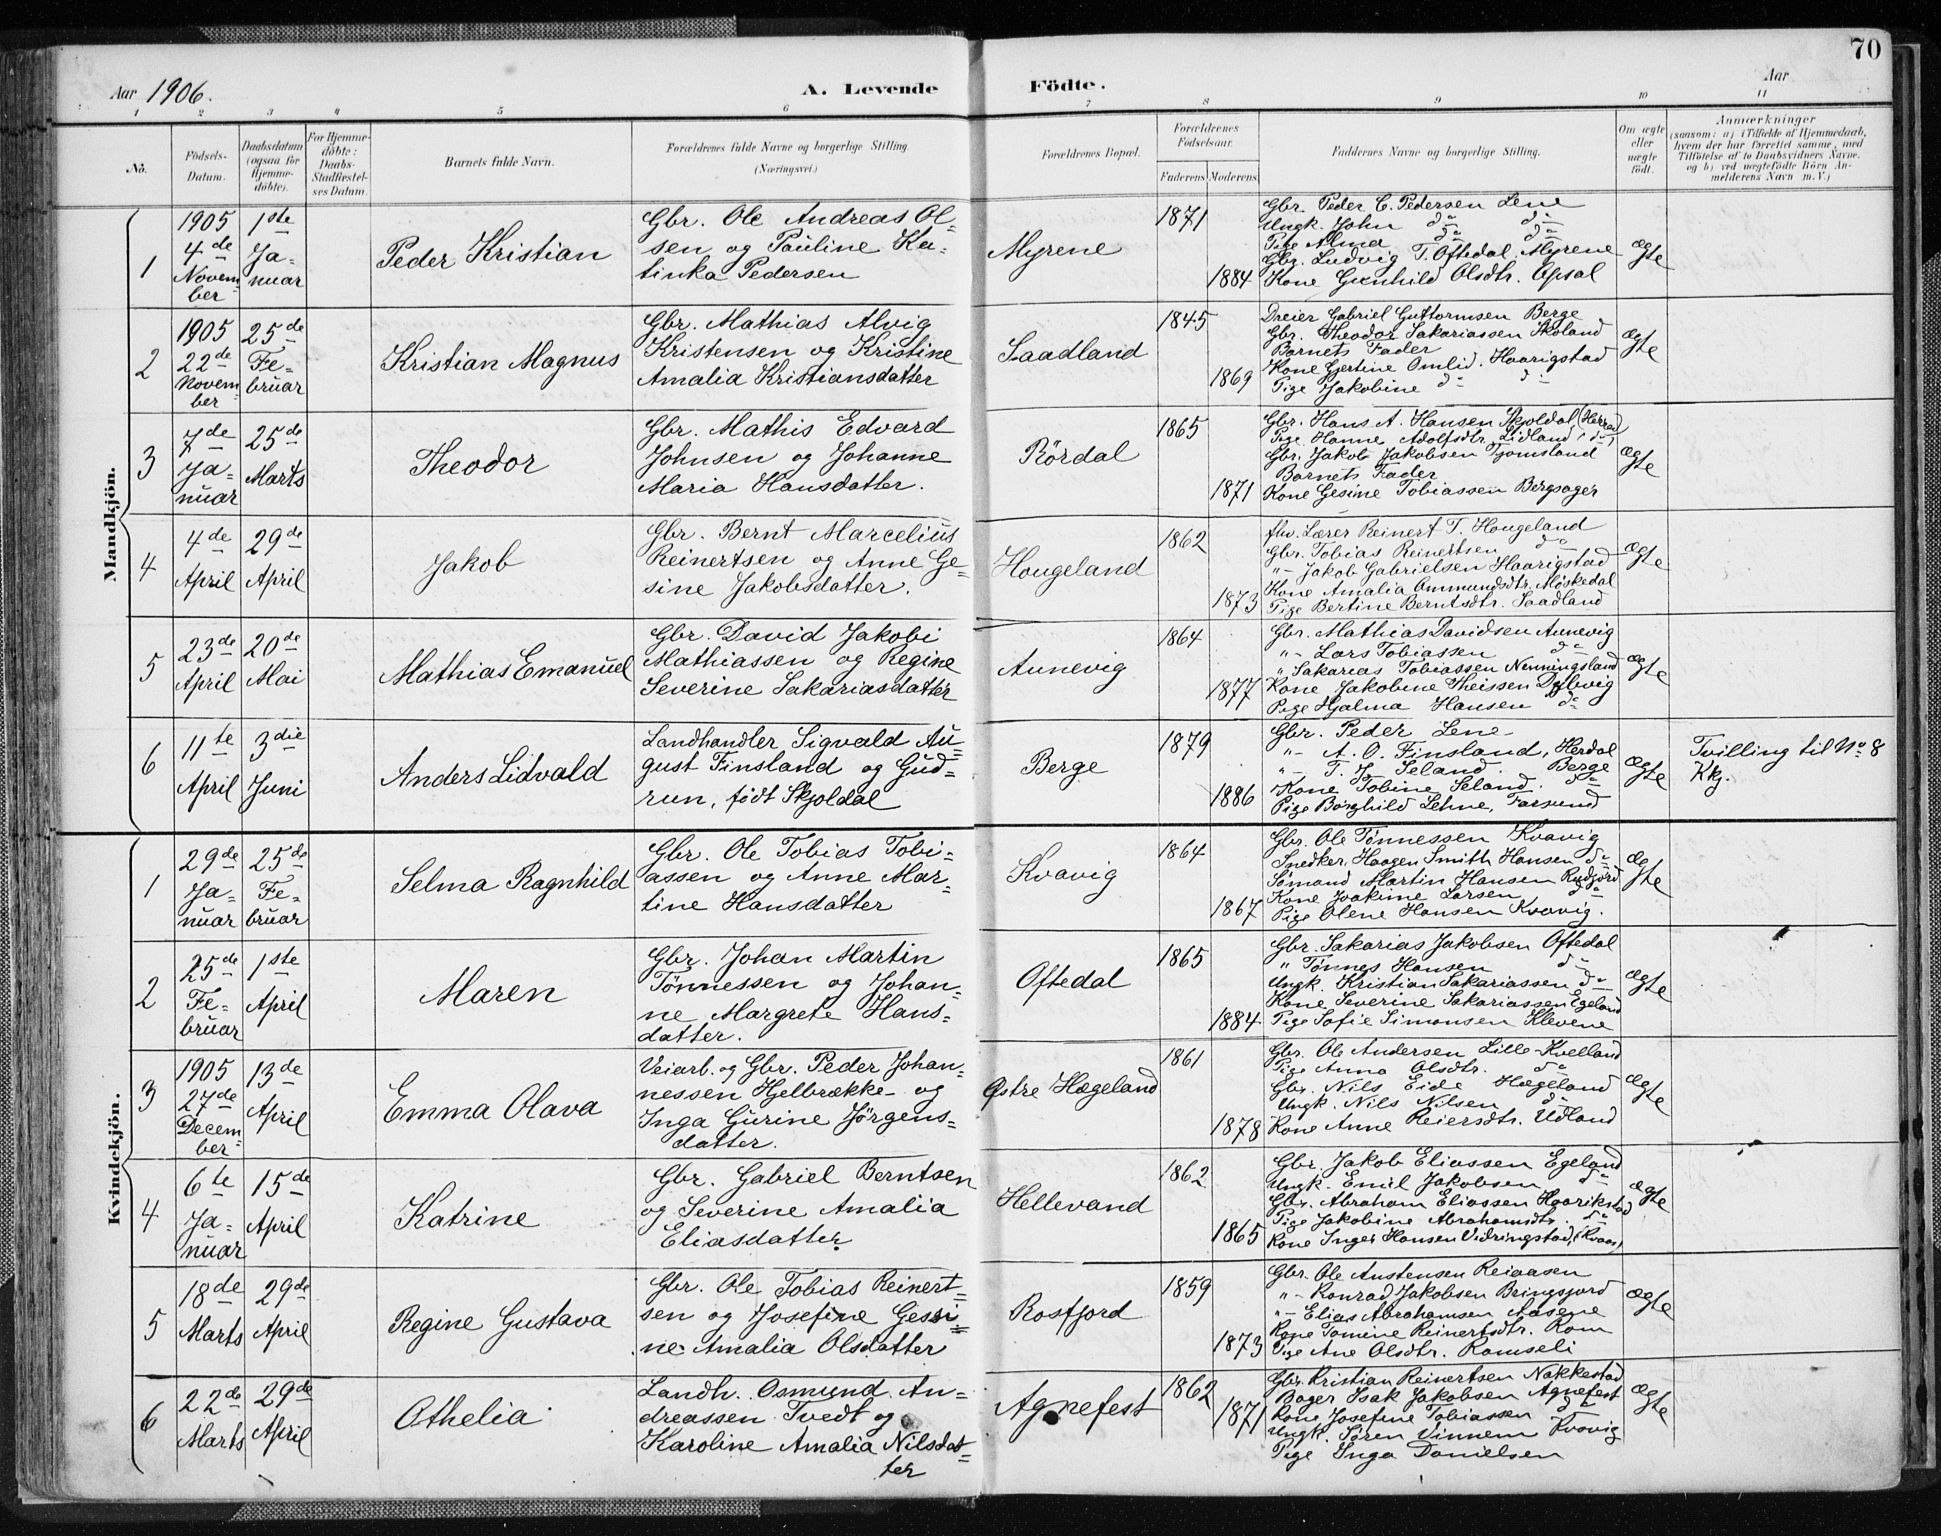 70
Aar 1906.
A. Levende
Födte.
Aar
1 2 3 4 5 6 7 8 9 10 11
No.
Födsels-Datum.
Daabsdatum (ogsaa för Hjemmedöbte).
For Hjemmedöbte: Daabs-Stadfæstelses Datum.
Barnets fulde Navn.
Forældrenes fulde Navne og borgerlige Stilling.
(Næringsvei.)
Forældrenes Bopæl.
Forældrenes Födselsaar.
Faderens. Moderens.
Faddernes Navne og borgerlige Stilling.
Om ægte eller uægte födt.
Anmærkninger
(saasom: a) i Tilfælde af Hjemmedaab, hvem der har forrettet samme, med Tilföielse af to Daabsvidners Navne, og b) ved uægtefödte Börn Anmelderens Navn m. V.)
Mandkjön.
1
1905
4de
Novem=
ber
1ste
Ja=
nuar
Peder Kristian
Gbr. Ole Andreas Ol=
sen og Pauline Ka=
tinka Pedersen
Myrene
1871
1884
Gbr. Peder C. Pedersen Lene
Ungk. John do do
Pige Alma do do
Gbr. Ludvig T. Oftedal, Myrene
Kone Gunhild Olsdtr. Opsal
Ægte
2
1905
22de
Novem
ber
25de
Fe=
bruar
Kristian Magnus
Gbr. Mathias Alvig
Kristensen og Kristine
Amalia Kristiansdatter
Saadland
1845
1869
Dreier Gabriel Guttormsen Berge
Gbr. Theodor Sakariassen Skoland
Barnets Fader
Kone Gjertine Omlid. Haarigstad
Pige Jakobine do do
Ægte
3
7de
Ja=
nuar
25de
Marts
Theodor
Gbr. Mathis Edvard
Johnsen og Johanne
Maria Hansdatter.
Rördal
1865
1871
Gbr. Hans A. Hansen Skjoldal, (Herred)
Pige Hanne Adolfsdtr. Lidland (do)
Gbr. Jakob Jakobsen Tjomsland
Barnets Fader
Kone Gesine Tobiassen Bergsager
Ægte
4
4de
April
29de
April
Jakob
Gbr. Bernt Marcelius
Reinertsen og Anne Ge=
sine Jakobsdatter.
Hougeland
1862
1873
fhv. Lærer Reinert T. Hougeland
Gbr. Tobias Reinertsen do
"- Jakob Gabrielsen Haarigstad
Kone Amalia Ommundsdtr. Møskedal
Pige Bertine Berntsdtr. Saadland
Ægte
5
23de
April
20de
Mai
Mathias Emanuel
Gbr. David Jakobi
Mathiassen og Regine
Severine Sakariasdatter
Aunevig
1864
1877
Gbr. Mathias Davidsen Aunevig
"- Lars Tobiassen do
" Sakarias Tobiassen Nenningsland
Kone Jakobine Theissen Dybvig
Pige Hjalma Hansen do
Ægte
6
11te
April
3die
Juni
Anders Lidvald
Landhandler Sigvald Au=
gust Finsland og Gud=
run, født Skjoldal
Berge
1879
1886
Gbr. Peder Lene
"- A. O. Finsland, Herdal
"- T. J. Seland. Berge
Kone Tobine Seland. do
Pige Borghild Lehne, Farsund
Ægte
Tvilling til No 8
Kkj.
Kvindekjön.
1
29de
Ja=
nuar
25de
Fe=
bruar
Selma Ragnhild
Gbr. Ole Tobias Tobi=
assen og Anne Mar=
tine Hansdatter
Kvavig
1864
1867
Gbr. Ole Tønnessen Kvavig
Snedker Haagen Smith Hansen do
Sømand Martin Hansen Rudjord
Kone Joakime Larsen do
Pige Olene Hansen Kvavig.
Ægte
2
25de
Fe=
bruar
1ste
April
Maren
Gbr. Johan Martin
Tönnessen og Johan=
ne Margrete Hans=
datter.
Oftedal
1865
1884
Gbr. Sakarias Jakobsen Oftedal
" Tønnes Hansen do
Ungk. Kristian Sakariassen do
Kone Severine Sakariassen Egeland
Pige Sofie Simonsen Klevene
Ægte
3
1905
27de
Decem=
ber
13de
April
Emma Olava
Veiarb. og Gbr. Peder Johan=
nessen Hjelbrække og
Inga Gurine Jörgens=
datter.
Østre Hægeland
1861
1878
Gbr. Ole Andersen Lille-Kvelland
Pige Anna Olsdtr. do
Gbr. Nils Eide Hægeland
Ungk. Nils Nilsen do
Kone Anne Reiersdtr. Udland
Ægte
4
6te
Ja=
nuar
15de
April
Katrine
Gbr. Gabriel Berntsen
og Severine Amalia
Eliasdatter
Hellevand
1862
1865
Gbr. Jakob Eliassen Egeland
Ungk. Emil Jakobsen do
Gbr. Abraham Eliassen Haarikstad
Pige Jakobine Abrahamsdtr. do
Kone Inger Hansen Vidringstad, (Kvaas)
Ægte
5
18de
Marts
29de
April
Regine Gustava
Gbr. Ole Tobias Reinert=
sen og Josefine Gessi=
ne Amalia Olsdatter
Rosfjord
1859
1873
Gbr. Ole Austensen Reiaasen
"- Konrad Jakobsen Bringsjord
"- Elias Abrahamsen Aasene
Kone Tomine Reinertsdtr. Rom
Pige Ane Olsdtr. Romseli
Ægte
6
22de
Marts
29de
April
Othelia
Landh. Osmund An=
dreassen Tvedt og
Karoline Amalia Nilsdat=
ter
Agnefest
1862
1871
Gbr. Kristian Reinertsen Nakkestad
Bager Isak Jakobsen Agnefest
Kone Josefine Tobiassen do
Ungk. Søren Vinnem Kvavig
Pige Inga Danielsen
Ægte